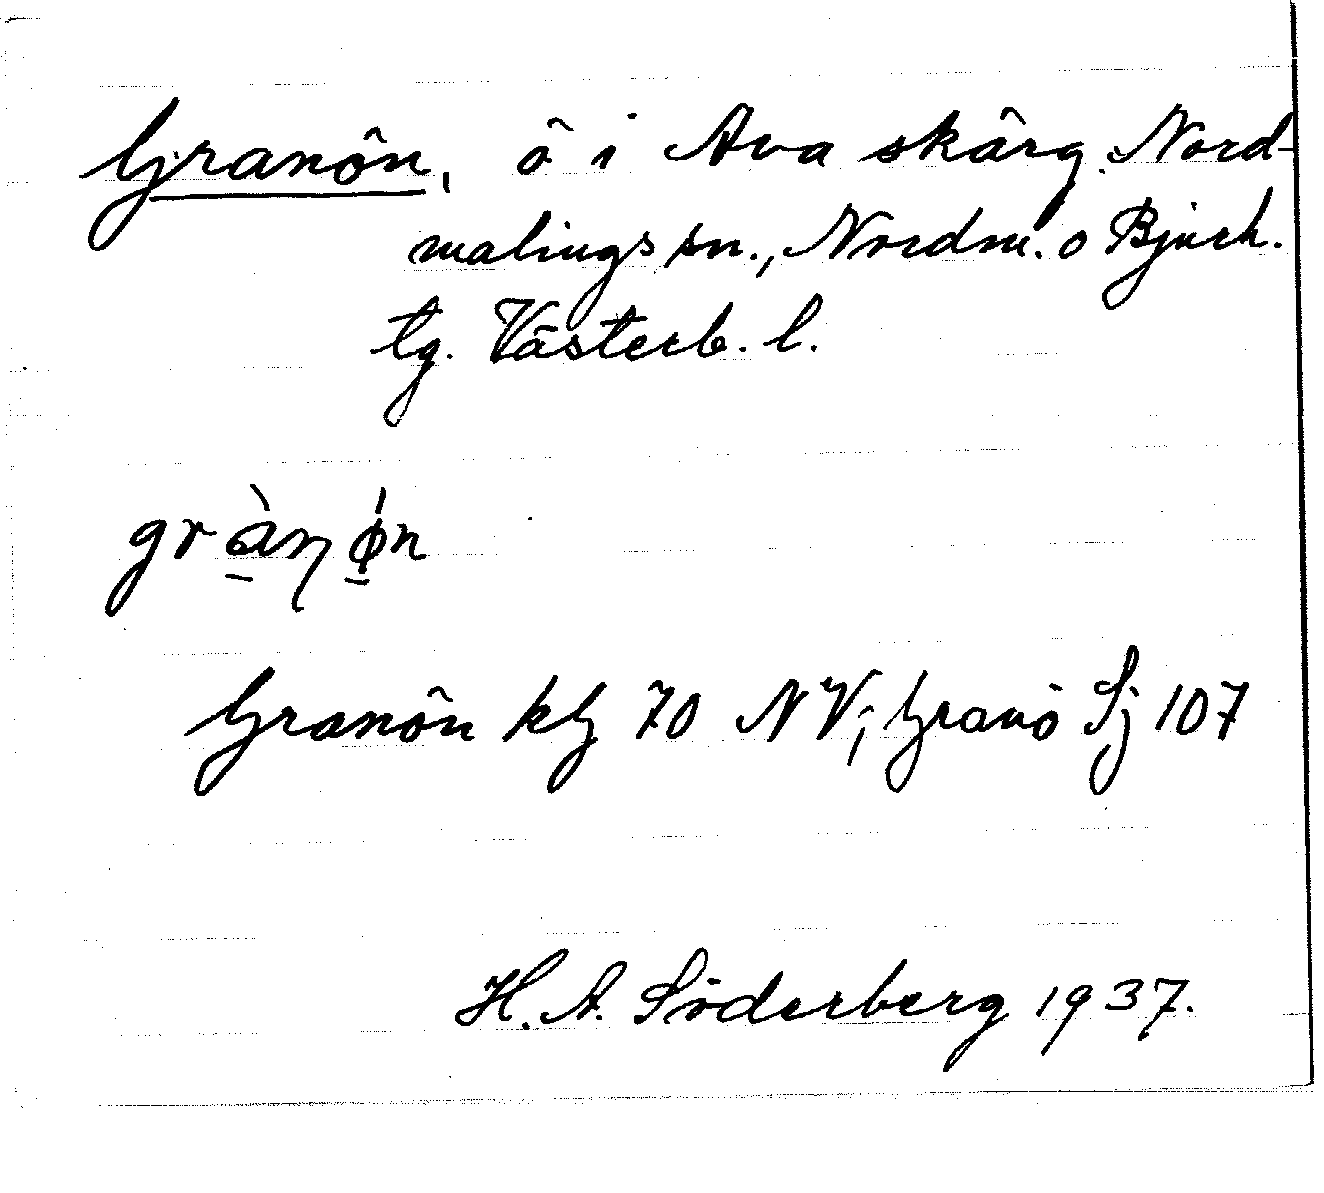 Granön, ö i Ava skärg. Nord-
malings sn., Nordm. o Bjurh.
tg. Västerb. l.
gràn ǿn
Granön kbl 70 NV; Granö Sj 107
H. A. Söderberg 1937.